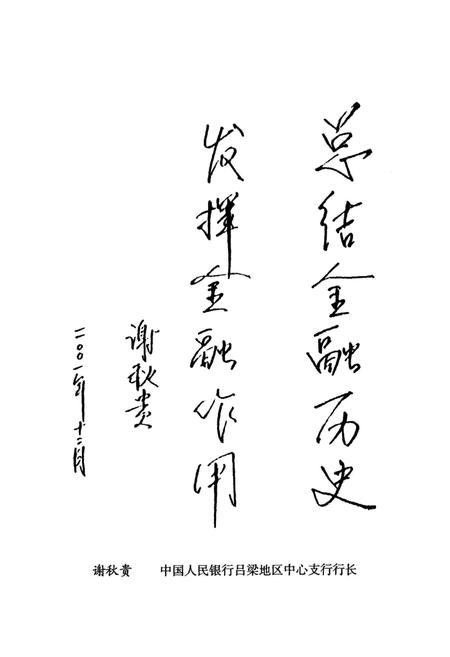 总结金融历史
发挥金融作用
谢秋贵
二〇〇一年十二月
谢秋贵 中国人民银行吕梁地区中心支行行长